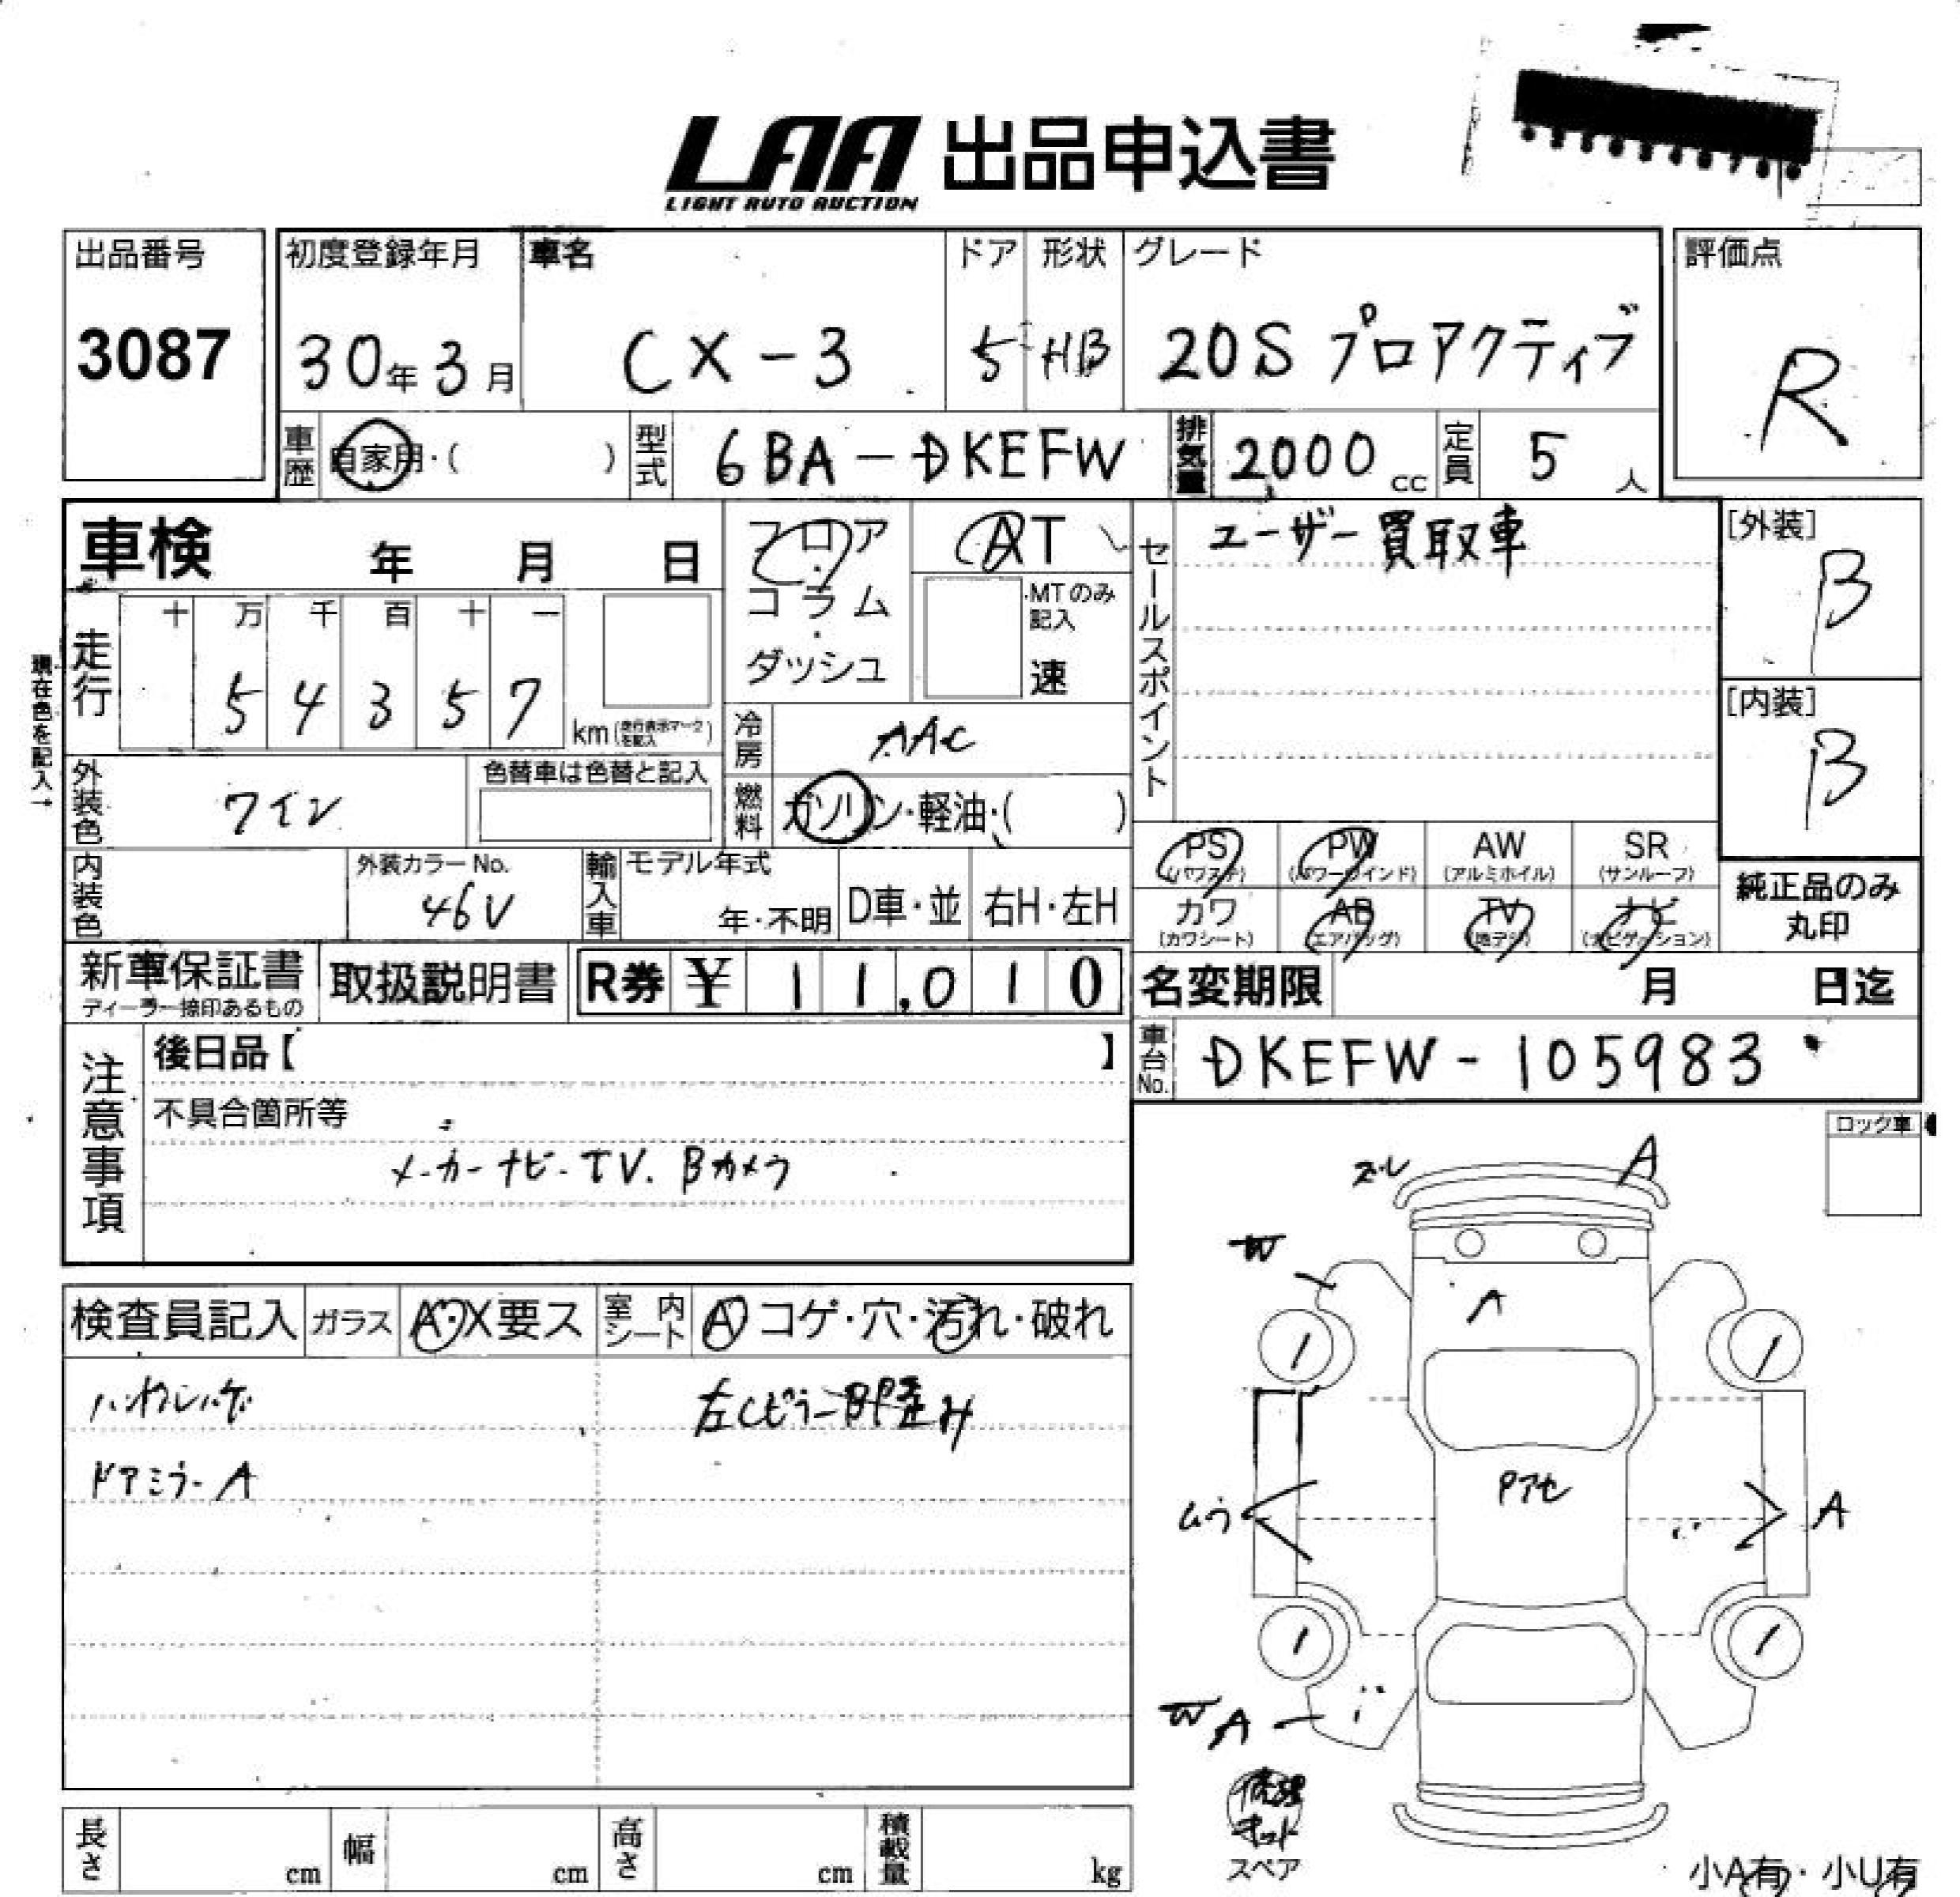 LAA 出品申込書
LIGHT AUTO AUCTION
出品番号 初度登録年月 車名 ドア 形状 グレード 評価点
3087 30年3月 CX-3 5 HB 20S プロアクティブ R
車歴 自家用・( ) 型式 6BA-DKEFW 排気量 2000cc 定員 5人
車検 年 月 日 フロア・コラム・ダッシュ AT セールスポイント ユーザー買取車 [外装] B
MTのみ記入 速
現在色を記入→
走行 十 万 千 百 十 一
5 4 3 5 7 km(走行表示マークを記入)
[内装] B
冷房 AAC
外装色 ワイン 色替車は色替と記入 燃料 ガソリン・軽油・( )
PS(パワステ) PW(パワーウインド) AW(アルミホイル) SR(サンルーフ)
内装色 外装カラーNo. 46V 輸入車 モデル年式 年・不明 D車・並 右H・左H
カワ(カワシート) AB(エアバッグ) TV(地デジ) ナビ(ナビゲーション) 純正品のみ丸印
新車保証書 ディーラー捺印あるもの 取扱説明書 R券 ¥ 11,010 名変期限 月 日迄
注意事項 後日品【 】 車台No. DKEFW-105983
不具合箇所等
メーカーナビ-TV. Bカメラ
ロック車
ズレ A
W
A
検査員記入 ガラス A・X要ス 室内シート A コゲ・穴・汚れ・破れ
ハンドルハゲ 左Cピラー部歪み
ドアミラーA
Pアセ
ムラ A
W A
修理キット
スペア
長さ cm 幅 cm 高さ cm 積載量 kg
小A有・小U有